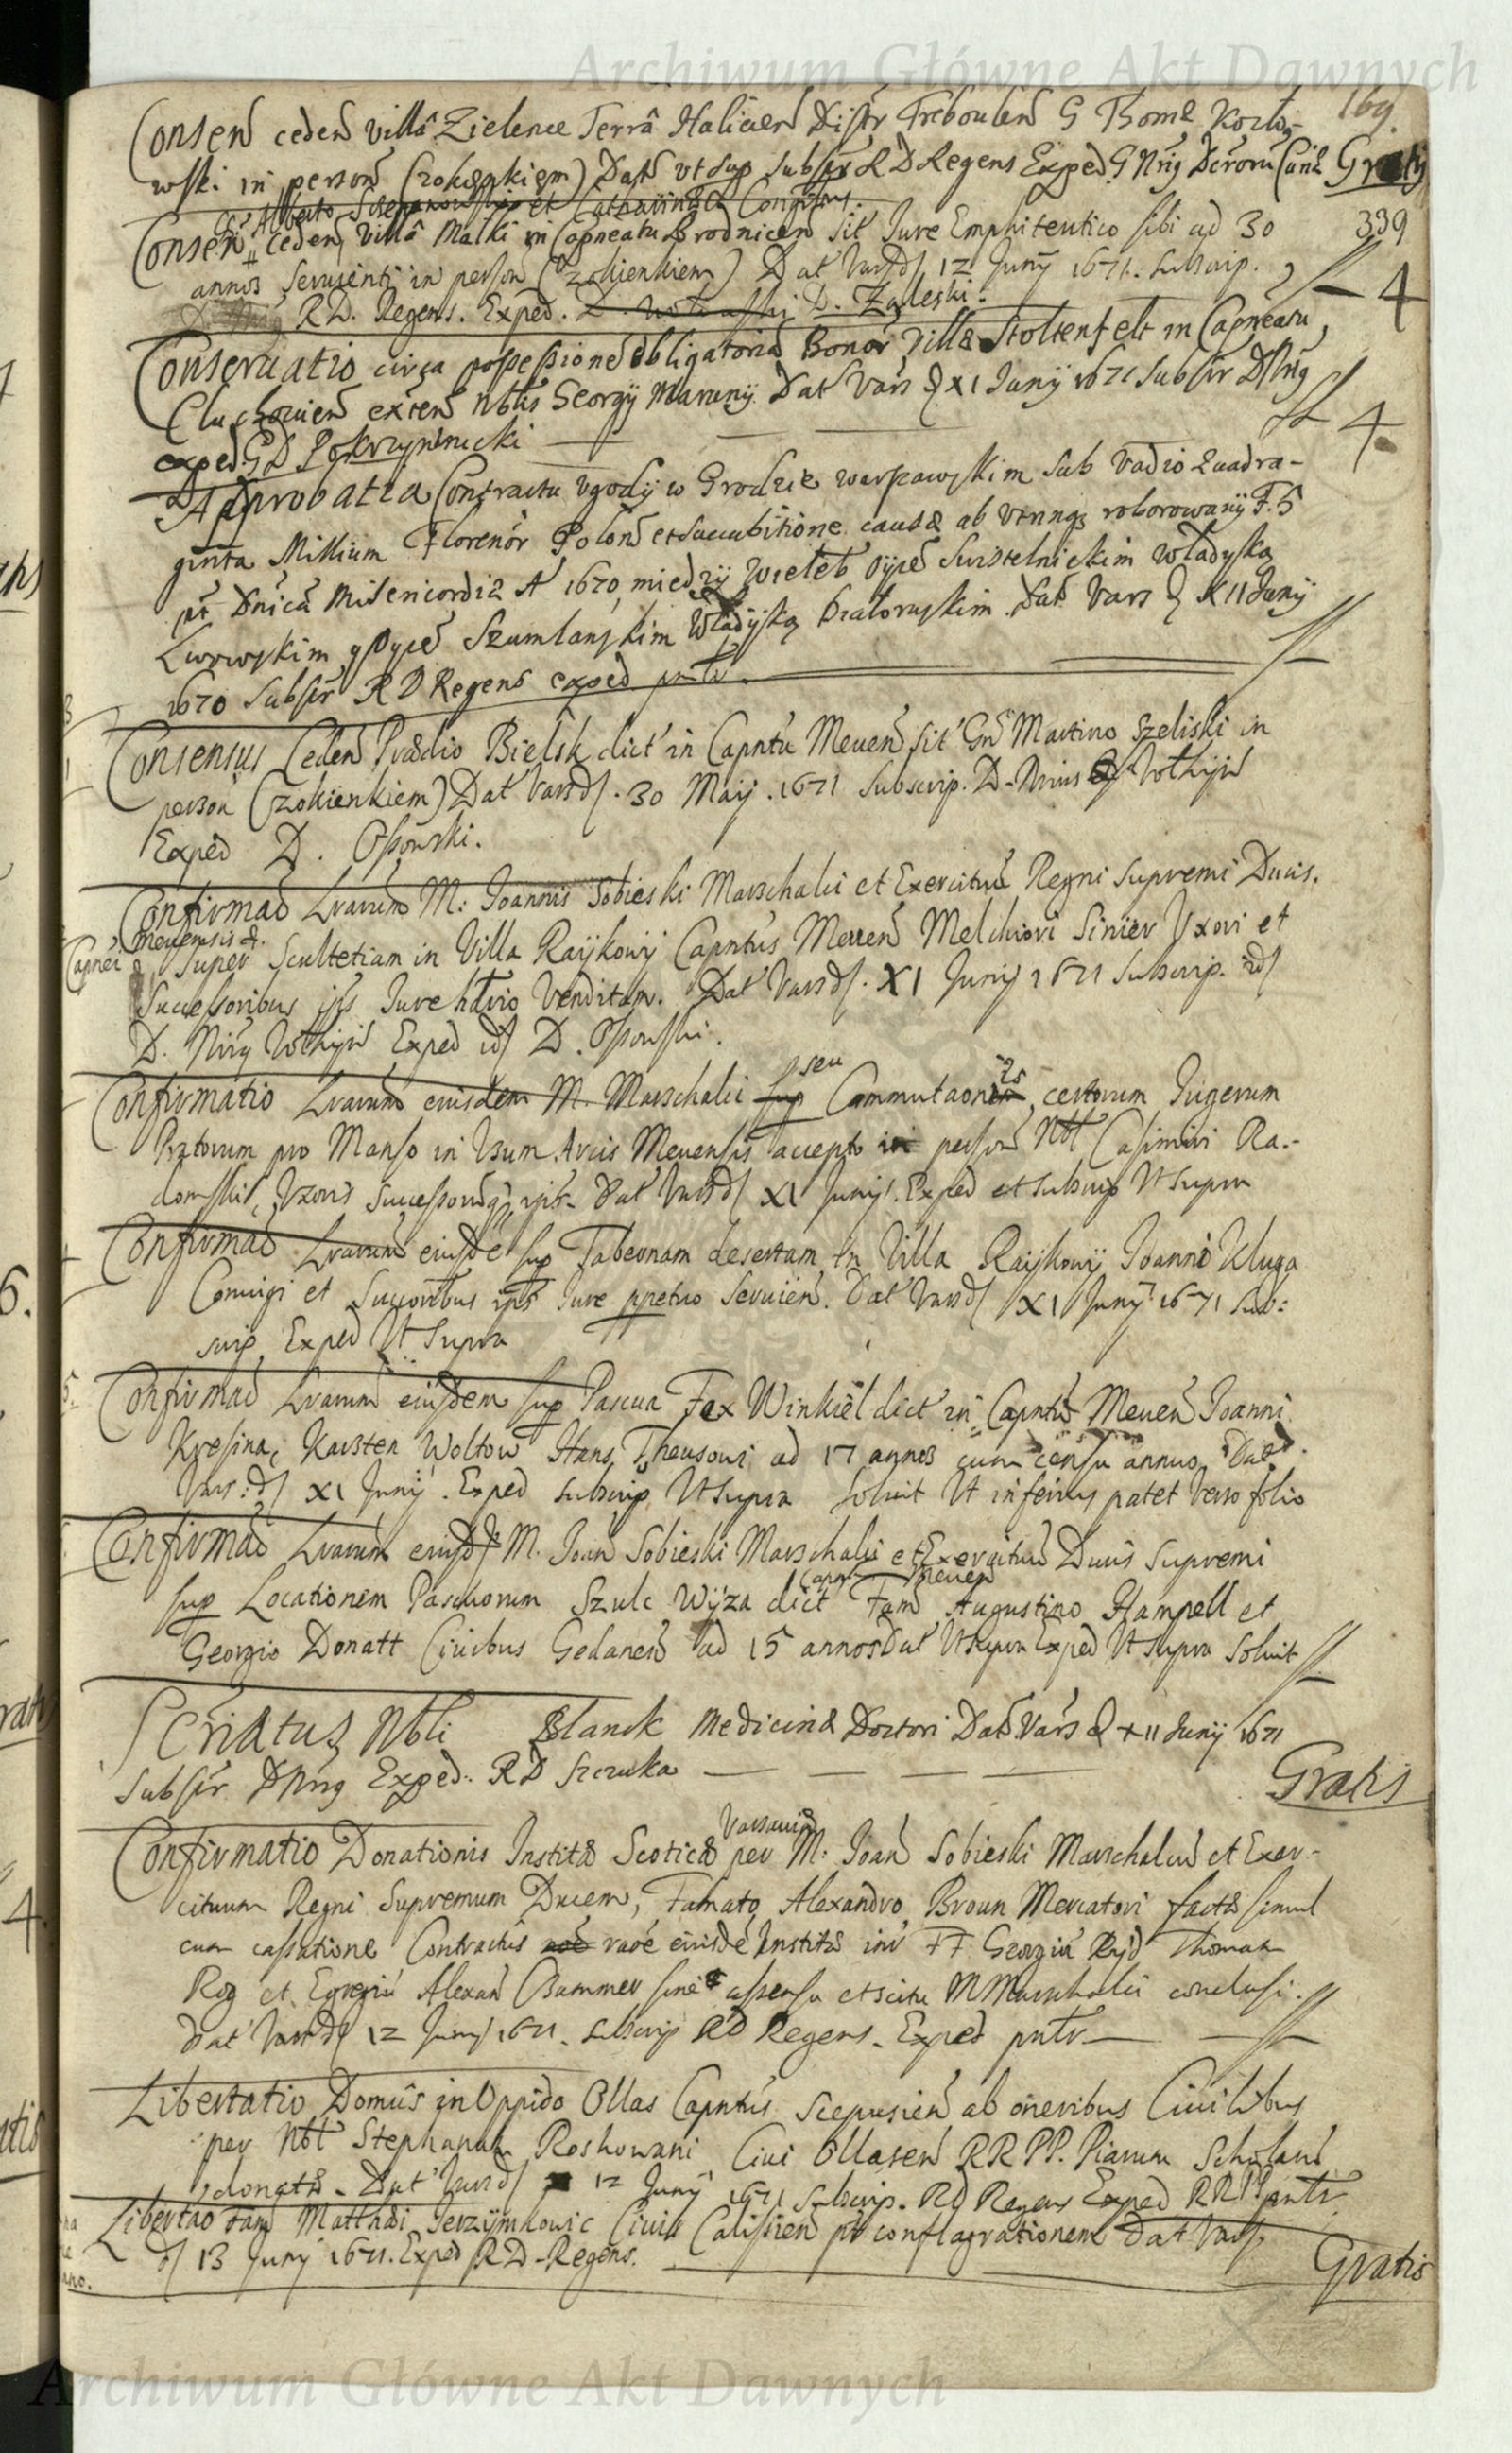 Archiwum Główne Akt Dawnych
169.
Consen ceden villa Zielence Terra Halicien Distr Treboulen G Thomæ Kozło-
wski in person (z okienkiem) Dat ut sup subscr R D Regens Exped G Nrij Decroru Cur Gratis
Gn Alberto et Catharinæ Coniugibus.
Consen ceden villa Malki in Capneatu Brodnicen sit Jure Emphiteutico sibi ad 30 339
annos servienti in person (z okienkiem) Dat Vars d 12 Junij 1671. subscrip. 4
R D. Regens. Exped. D. Zaleski.
Conservatio circa possessione obligatoria Bonor villæ Stoltenfelt in Capneatu
Cluchovien exten Nblis Georgij Dat Vars d XI Junij 1671 subscr D Nrij 4
exped G D Pokrzywnicki
Approbatia Contractu ugody w Grodzie warszawskim sub vadio quadra-
ginta Millium Florenor Polon et succubitione causæ ab utrinq roborowany F. 5
pt Dnica Misericordia A 1670, miedzy Wieleb oyce Swistelnickim Władyką
Lwowskim y Oyce Szumlanskim Władyką Dat Vars d XII Junij
1670 subscr R D Regens exped pntr
Consensus Ceden Prædio Bielsk dict in Capntu Meuen sit Gn Martino Szeliski in
person (z okienkiem) Dat Vars d. 30 Maij. 1671 subscrip. D. Nrius
Exped D. Ossowski.
Confirmao Lrarum M: Joannis Sobieski Marschalci et Exercituu Regni Supremi Ducis.
Capnei Mevensis &.
Super Scultetiam in Villa Raykowy Capntus Meuen Melchiori Sinier Uxori et
Successoribus ips Jure Venditam. Dat Vars d. XI Junij 1671 subscrip. id
D. Nrij Exped id D. Ossowski.
Confirmatio Lrarum eiusdem M. Marschalci sup seu Commutaonis, certorum Jugerum
Pratorum pro Manso in Usum Arcis Mevensis accepto in person Nbl Casimiri Ra-
domski, Uxoris Successorumq ips Dat Vars d XI Junij. Exped et subscrip Ut supra
Confirmao Lrarum eiusde sup Tabernam desertam in Villa Raykowy Joanni Kluga
Coniugi et Succoribus ips Jure ppetuo Servien. Dat Vars d XI Junij 1671 sub:
scrip Exped Ut supra
Confirmao Lrarum eiusdem sup Pascua Fex Winkiel dict in Capntu Meuen Joanni
Kresina, Karsten Woltow Hans Theusoni ad 17 annos cum censu annuo Dat.
Vars: d XI Junij. Exped subscrip Ut supra Solvit Ut inferius patet verso folio
Confirmao Lrarum eiusd M. Joan Sobieski Marschalci et Exercituu Ducis Supremi
Capn Meuen
sup Locationem Pascuorum Szulc Wyza dict Fam Augustino Hampell et
Georgio Donatt Civibus Gedanen ad 15 annos Dat Ut supra Exped Ut supra Solvit
Scriatus Nbli Blanck Medicinæ Doctori Dat Vars d XII Junij 1671
subscr D Nrij Exped. R D Szczuka Gratis
Varsaviæ
Confirmatio Donationis Institæ Scoticæ per M. Joan Sobieski Marschalcu et Exer-
cituum Regni Supremum Ducem, Famato Alexandro Broun Mercatori factæ simul
cum cassatione Contractus raoe eiusde Institæ inr FF Georgiu Ryd Thomam
Rog et Egregiu Alexan Chammer sine assensu et scitu M Marschalci conclusi.
Dat Vars d 12 Junij 1671. subscrip RD Regens. Exped pntr
Libertatio Domus in Oppido Ollas Capntus Scepusien ab oneribus Civilibus
per Nbl Stephanum Roskowani Civi Ollasen RR PP. Piarum Scholaru
donatæ. Dat Vars d 12 Junij 1671 subscrip. RD Regens Exped RR PP pntr
Libertao Fam Matthæi Jerzymkowic Civis Calissien pt conflagrationem Dat Vars
d 13 Junij 1671. Exped R D. Regens. Gratis
Archiwum Główne Akt Dawnych